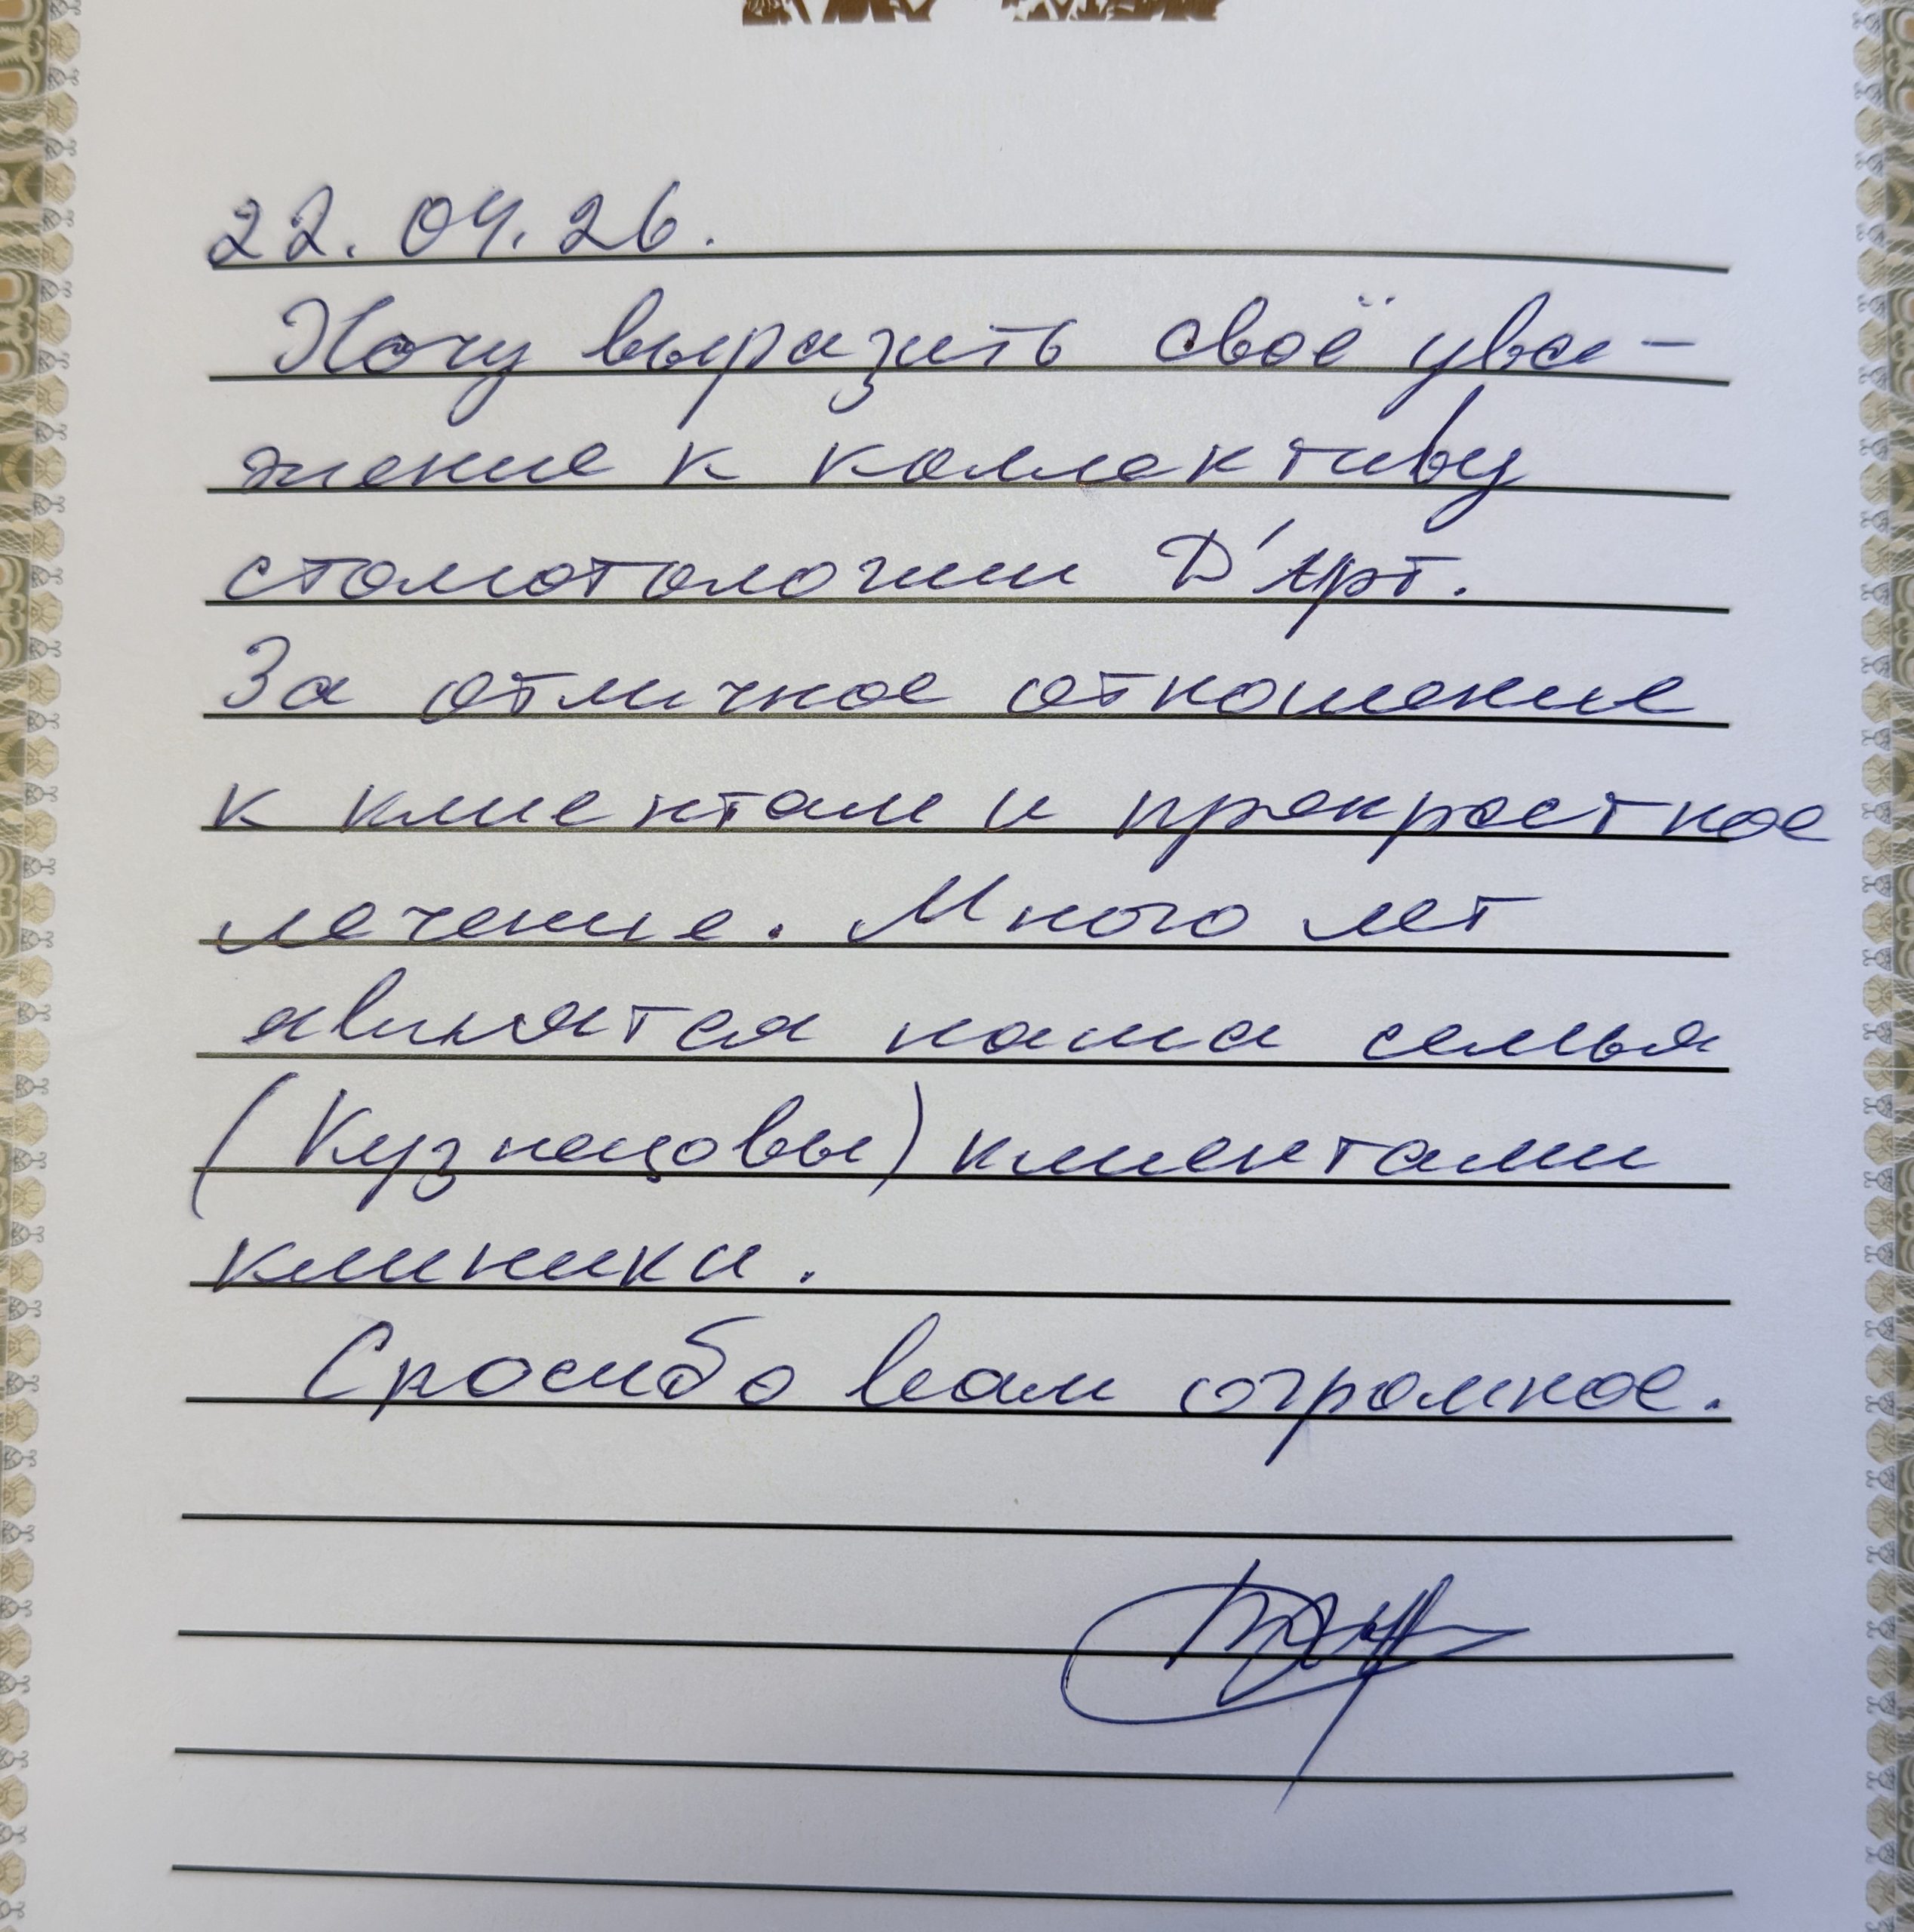 22.04.26.
Хочу выразить своё ува-
жение к коллективу
стомотологии Д'Арт.
За отличное отношение
к клиентам и прекрастное
лечение. Много лет
являятся наша семья
(Кузнецовы) клиентами
клиники.
Спосибо вам огромное.